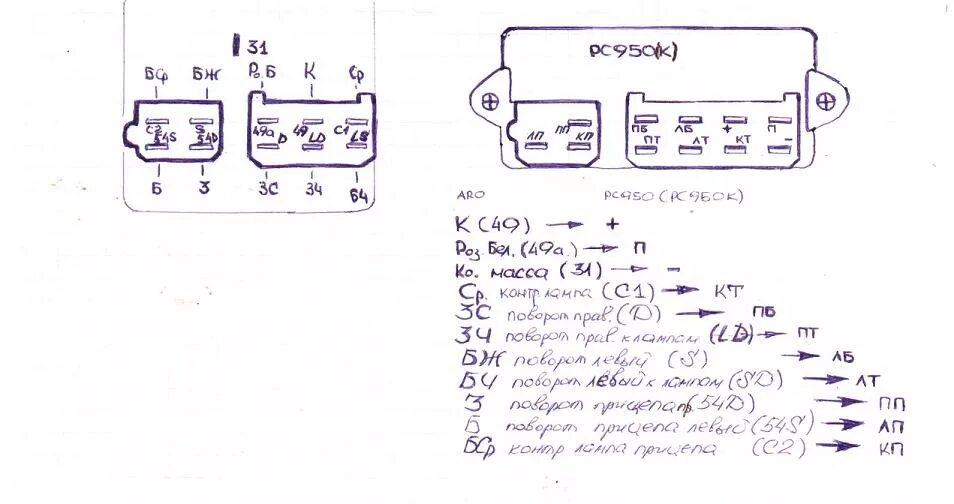 31
БФ БЖ Ро.Б К Ср
С2 S 49а 49 С1
54S 54D D LD LS
Б З ЗС ЗЧ БЧ
РС950(К)
ПП ПБ ЛБ + П
ЛП КП ПТ ЛТ КТ -
ARO РС950 (РС950К)
К (49) → +
Роз.Бел. (49а.) → П
Ко. масса (31) → -
Ср. контр лампа (С1) → КТ
ЗС поворот прав. (D) → ПБ
ЗЧ поворот прав. к лампам (LD) → ПТ
БЖ поворот левый (S) → ЛБ
БЧ поворот левый к лампам (SD) → ЛТ
З поворот прицепа пр. (54D) → ПП
Б поворот прицепа левый (54S) → ЛП
БФ контр лампа прицепа (С2) → КП